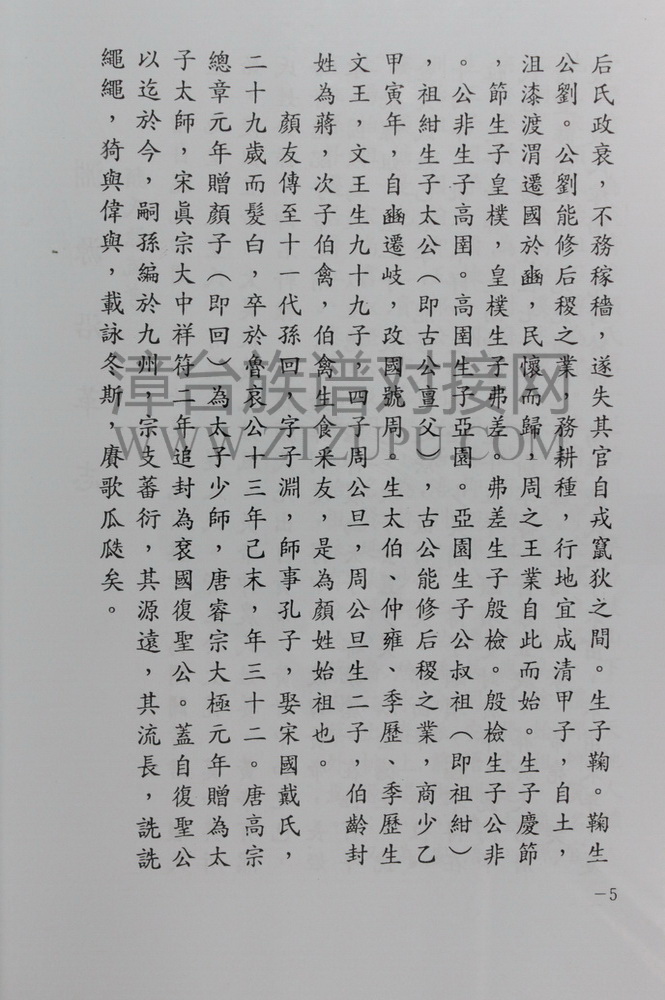 后氏政衰，不務稼穡，遂失其官自戎竄狄之間。生子鞠。鞠生
公劉。公劉能修后稷之業，務耕種，行地宜成清甲子，自土，
沮漆渡渭遷國於豳，民懷而歸，周之王業自此而始。生子慶節
，節生子皇樸，皇樸生子弗差。弗差生子殷檢。殷檢生子公非
。公非生子高圉。高圉生子亞園。亞園生子公叔祖（即祖紺）
，祖紺生子太公（即古公亶父），古公能修后稷之業，商少乙
甲寅年，自豳遷岐，改國號周。生太伯、仲雍、季歷、季歷生
文王，文王生九十九子，四子周公旦，周公旦生二子，伯齡封
姓為蔣，次子伯禽，伯禽生食采友，是為顏姓始祖也。
顏友傳至十一代孫回，字子淵，師事孔子，娶宋國戴氏，
二十九歲而髮白，卒於魯哀公十三年己未，年三十二。唐高宗
總章元年贈顏子（即回）為太子少師，唐睿宗大極元年贈為太
子太師，宋眞宗大中祥符二年追封為兗國復聖公。蓋自復聖公
以迄於今，嗣孫編於九州，宗支蕃衍，其源遠，其流長，詵詵
繩繩，猗與偉與，載詠冬斯，賡歌瓜瓞矣。
－5
漳台族谱对接网
WWW.ZTZUPU.COM